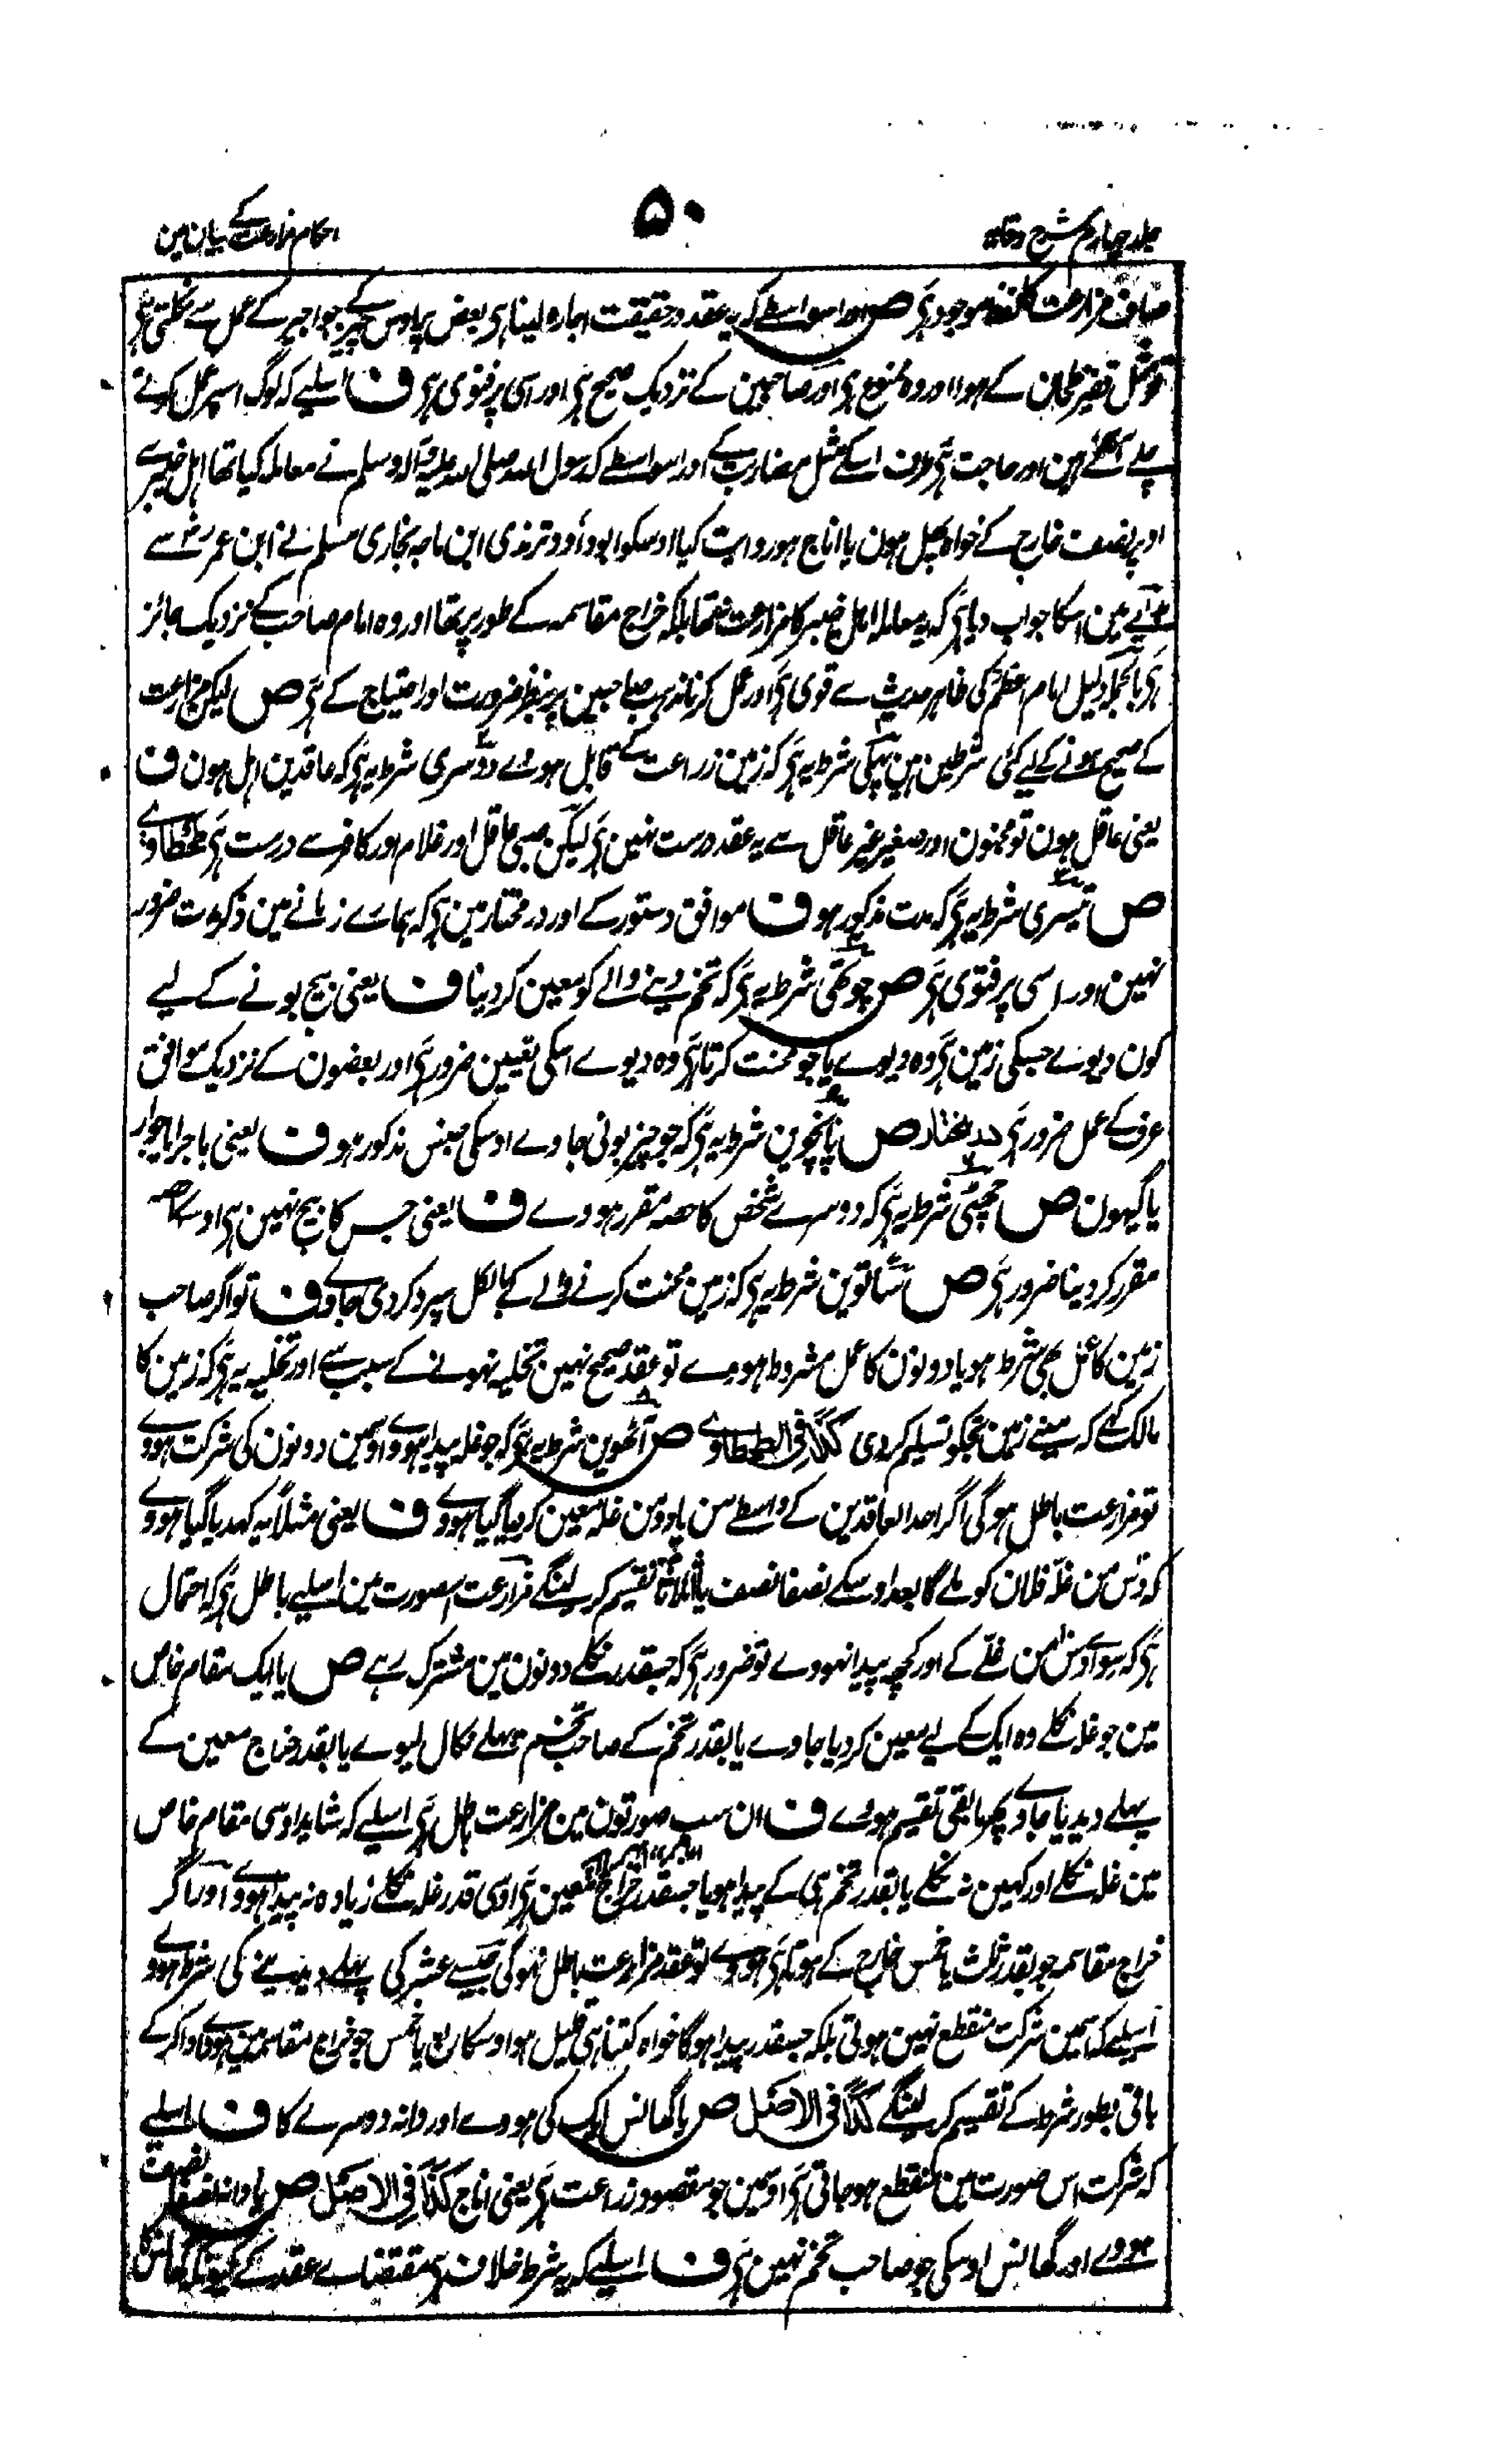 جلد چہارم شرح وقایہ
۵۰
احکام مزارعت کے بیان مین
مزارعت کا لفظ موجود ہی ص اور اسواسطے کہ یہ عقد درحقیقت اجارہ لینا ہی بعض پر اوس چیز کے جو اجیر کے عمل سے نکلتی ہی
تو مثل قفیز طحان کے ہوا اور وہ ممنوع ہی اور صاحبین کے نزدیک صحیح ہی اور اسی پر فتوی ہی ف اسلیے کہ لوگ اسپر عمل کرتے
چلے آئے ہین اور حاجت ہی طرف اسکے مثل مضاربت کے اور اسواسطے کہ رسول اللہ صلی اللہ علیہ وآلہ وسلم نے معاملہ کیا تھا اہل خیبر سے
اوپر نصف خارج کے خواہ پھل ہون یا اناج ہو روایت کیا اوسکو ابوداؤد ترمذی ابن ماجہ بخاری مسلم نے ابن عمر رضہ سے
ہدایے مین اسکا جواب دیا ہی کہ یہ معاملہ اہل خیبر کا مزارعت نتھا بلکہ خراج مقاسمہ کے طور پر تھا اور وہ امام صاحب کے نزدیک جائز
ہی بالجملہ دلیل امام اعظم کی ظاہر حدیث سے قوی ہی اور عمل کرنا مذہب صاحبین پر بنظر ضرورت اور احتیاج کے ہی ص لیکن مزارعت
کے صحیح ہونے کے لیے کئی شرطین ہین پہلی شرط یہ ہی کہ زمین زراعت کے قابل ہووے دوسری شرط یہ ہی کہ عاقدین اہل ہون ف
یعنی عاقل ہون تو مجنون اور صغیر غیر عاقل سے یہ عقد درست نہین ہی لیکن صبی عاقل اور غلام اور کافر سے درست ہی طحطاوی
ص تیسری شرط یہ ہی کہ مدت مذکور ہو ف موافق دستور کے اور درمختار مین ہی کہ ہمارے زمانے مین ذکر مدت ضرور
نہین اور اسی پر فتوی ہی ص چوتھی شرط یہ ہی کہ تخم دینے والے کو معین کر دینا ف یعنی بیج بونے کے لیے
کون دیوے جسکی زمین ہی وہ دیوے یا جو محنت کرتا ہی وہ دیوے اسکی تعیین ضرور ہی اور بعضون کے نزدیک موافق
عرف کے عمل ضرور ہی درمختار ص پانچوین شرط یہ ہی کہ جو چیز بوئی جاوے اوسکی جنس مذکور ہو ف یعنی باجرا یا جوار
یا گیہون ص چھٹی شرط یہ ہی کہ دوسرے شخص کا حصہ مقرر ہووے ف یعنی جس کا بیج نہین ہی اوسکا حصہ
مقرر کر دینا ضرور ہی ص ساتوین شرط یہ ہی کہ زمین محنت کرنے والے کے بالکل سپرد کردی جاوے ف تو اگر صاحب
زمین کا عمل بھی شرط ہو یا دونون کا عمل مشروط ہووے تو عقد صحیح نہین تخلیہ نہونے کے سبب سے اور تخلیہ یہ ہی کہ زمین کا
مالک کہے کہ مینے زمین تجکو تسلیم کر دی کذا فی الطحطاوی ص آٹھوین شرط یہ ہی کہ جو غلہ پیدا ہووے اوسمین دونون کی شرکت ہووے
تو مزارعت باطل ہوگی اگر احد العاقدین کے واسطے من یا دو من غلہ معین کر دیا گیا ہووے ف یعنی مثلاً یہ کہدیا گیا ہووے
کہ دس من غلہ فلان کو ملے گا بعد اوسکے نصفا نصف یا اثلاثا تقسیم کر لینگے مزارعت اس صورت مین اسلیے باطل ہی کہ احتمال
ہی کہ سوا دس من غلے کے اور کچھ پیدا نہووے تو ضرور ہی کہ جسقدر نکلے دونون مین مشترک رہے ص یا ایک مقام خاص
مین جو غلہ نکلے وہ ایک کے لیے معین کر دیا جاوے یا بقدر تخم کے صاحب تخم پہلے نکال لیوے یا بقدر خراج معین کے
پہلے دیدیا جاوے پھر مابقی تقسیم ہووے ف ان سب صورتون مین مزارعت باطل ہی اسلیے کہ شاید اوسی مقام خاص
مین غلہ نکلے اور کہین نہ نکلے یا بقدر تخم ہی کے پیدا ہو یا جسقدر خراج معین ہی اوسی قدر غلہ نکلے زیادہ نہ پیدا ہووے اور اگر
خراج مقاسمہ جو بقدر ثلث یا خمس خارج کے ہوتا ہی ہووے تو عقد مزارعت باطل نہوگی جیسے عشر کی پہلے دیدینے کی شرط ہووے
اسلیے کہ اسمین شرکت منقطع نہین ہوتی بلکہ جسقدر پیدا ہوگا خواہ کتنا ہی قلیل ہو اوسکا ربع یا خمس جو خراج مقاسمہ مین ہووے ادا کر کے
باقی بطور شرط کے تقسیم کر لینگے کذا فی الاصل ص یا گھانس ایک کی ہووے اور دانہ دوسرے کا ف اسلیے
کہ شرکت اس صورت مین منقطع ہوجاتی ہی اوسمین جو مقصود زراعت ہی یعنی اناج کذا فی الاصل ص یا دانہ نصفا نصف
ہووے اور گھانس اوسکی جو صاحب تخم نہین ہی ف اسلیے کہ یہ شرط خلاف ہی مقتضاے عقد کے کیونکہ گھانس